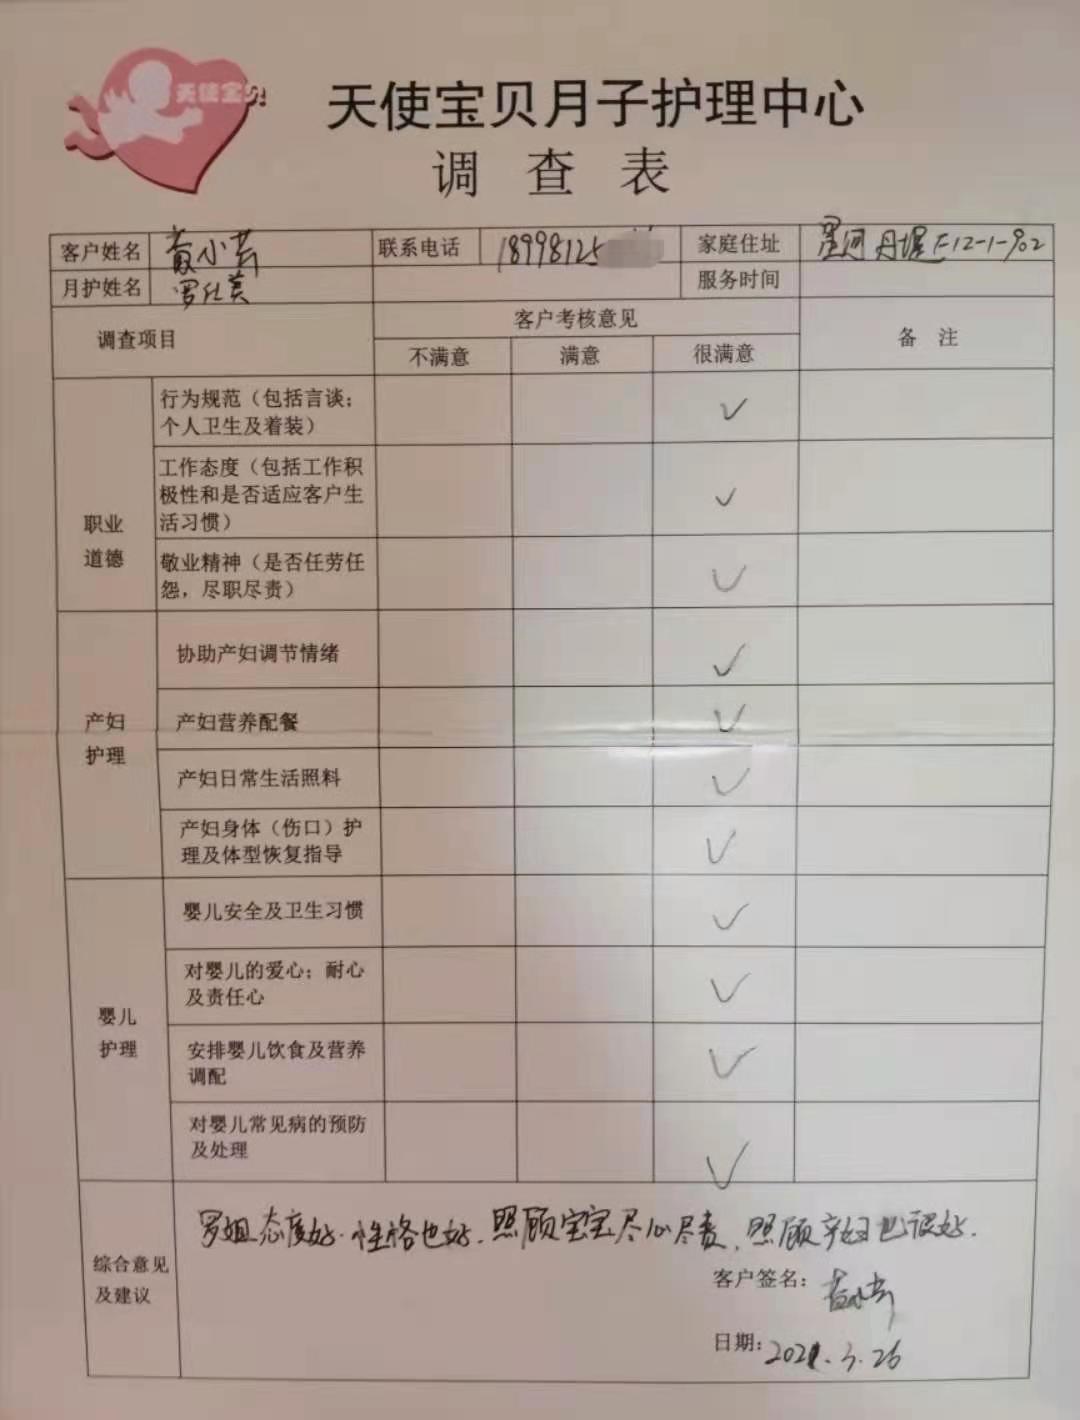 天使宝贝
天使宝贝月子护理中心
调查表
客户姓名 黄小芸 联系电话 18998125 家庭住址 星河丹堤F12-1-902
月护姓名 罗仕美 服务时间
调查项目 客户考核意见 备 注
不满意 满意 很满意
职业
道德
行为规范（包括言谈；
个人卫生及着装） ✓
工作态度（包括工作积
极性和是否适应客户生
活习惯） ✓
敬业精神（是否任劳任
怨，尽职尽责） ✓
产妇
护理
协助产妇调节情绪 ✓
产妇营养配餐 ✓
产妇日常生活照料 ✓
产妇身体（伤口）护
理及体型恢复指导 ✓
婴儿
护理
婴儿安全及卫生习惯 ✓
对婴儿的爱心；耐心
及责任心 ✓
安排婴儿饮食及营养
调配 ✓
对婴儿常见病的预防
及处理 ✓
综合意见
及建议
罗姐态度好．性格也好．照顾宝宝尽心尽责，照顾产妇也很好．
客户签名：黄小芸
日期：2021.3.26